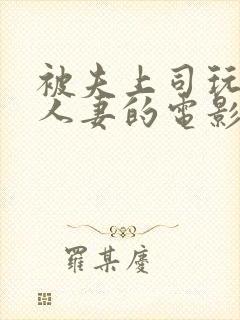 被夫上司玩
人妻的电影
羅某慶